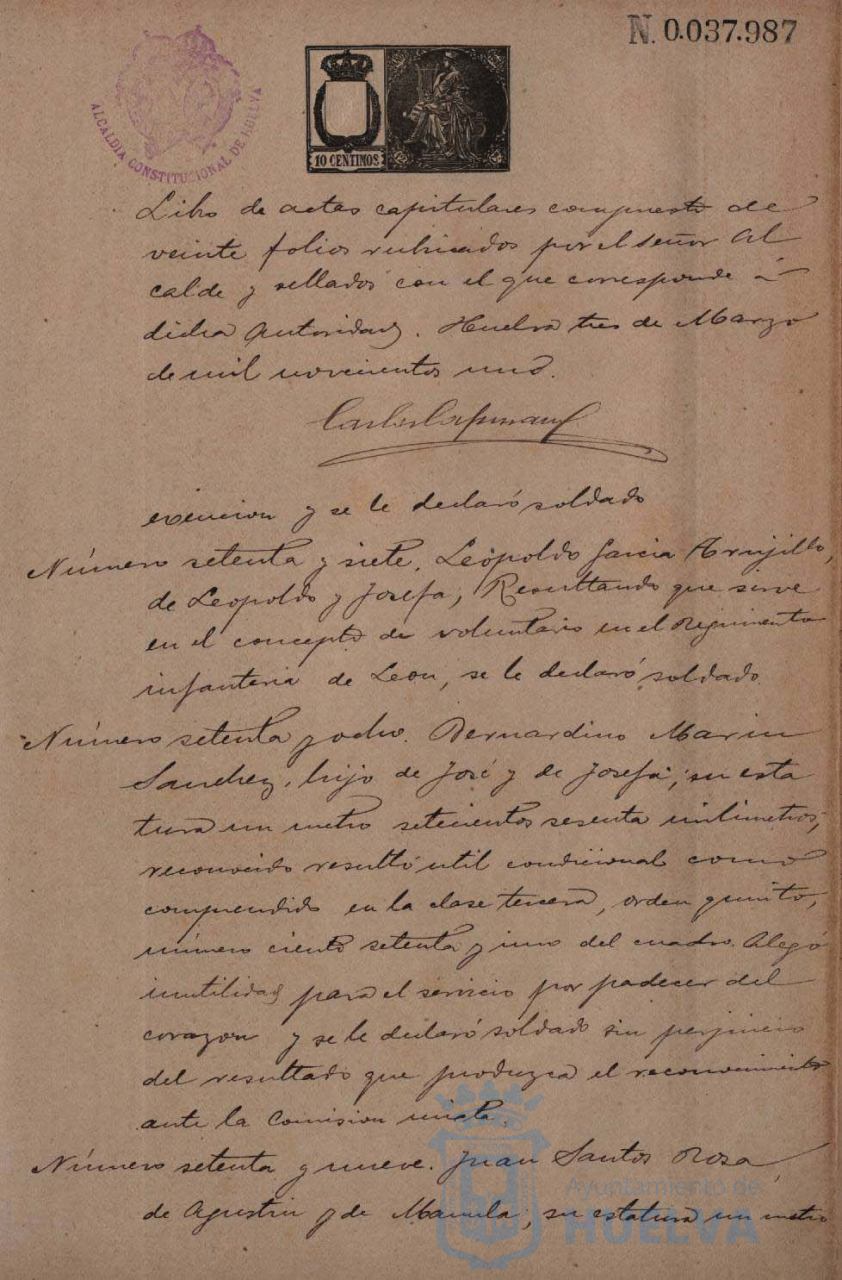 N. 0.037.987
ALCALDIA CONSTITUCIONAL DE HUELVA
10 CENTIMOS
Libro de actas capitulares compuesto de
veinte folios rubricados por el señor Al
calde y sellados con el que corresponde á
dicha Autoridad. Huelva tres de Marzo
de mil novecientos uno.
exencion y se le declaró soldado
Número setenta y siete. Leopoldo Garcia Trujillo,
de Leopoldo y Josefa, Resultando que sirve
en el concepto de voluntario en el Regimiento
infanteria de Leon, se le declaró soldado.
Número setenta y ocho. Bernardino Marin
Sanchez, hijo de José y de Josefa; su esta
tura un metro setecientos sesenta milimetros;
reconocido resultó útil condicional como
comprendido en la clase tercera, orden quinto,
número ciento setenta y uno del cuadro. Alegó
inutilidad para el servicio por padecer del
corazon y se le declaró soldado sin perjuicio
del resultado que produzca el reconocimiento
ante la Comision mixta.
Número setenta y nueve. Juan Santos Rosa,
de Agustin y de Manuela, su estatura un metro
Ayuntamiento de
HUELVA